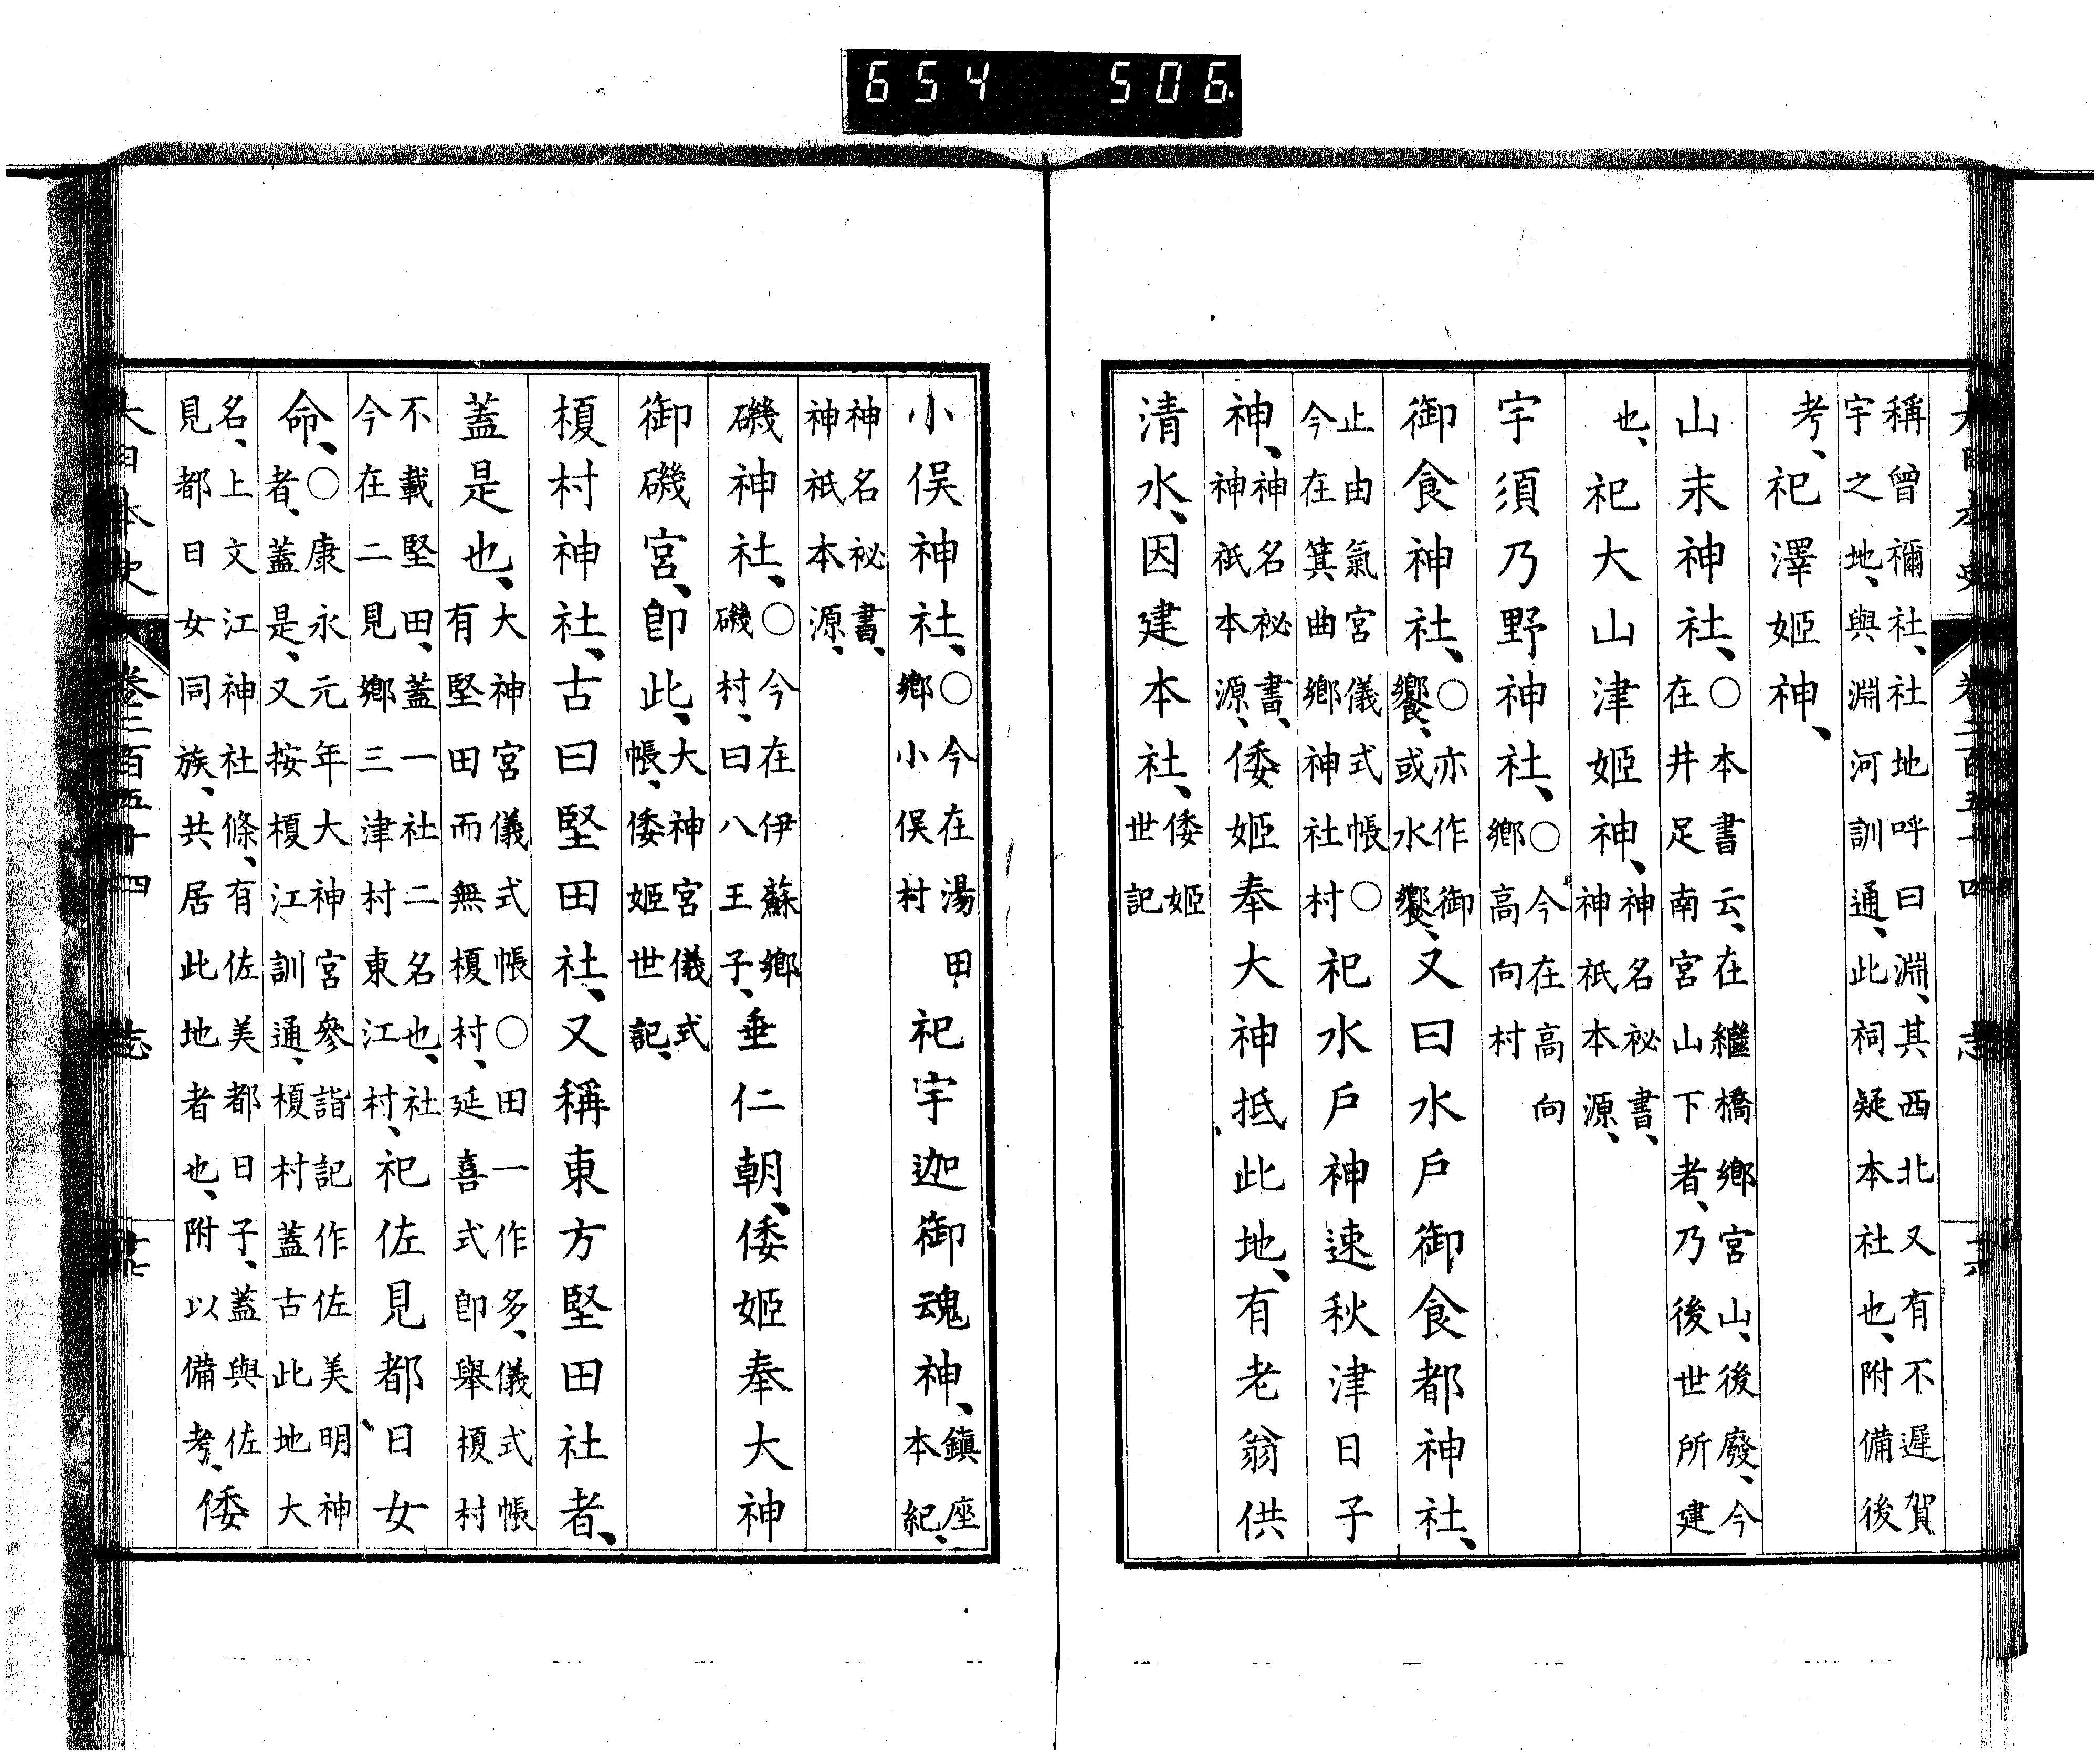 654 506
稱曾禰社、社地呼曰淵、其西北又有不遲賀
宇之地、與淵河訓通、此祠疑本社也、附備後
考、祀澤姬神、
山末神社、○本書云、在繼橋鄉宮山、後廢、今
在井足南宮山下者、乃後世所建
也、祀大山津姬神、神名祕書、
神祇本源、
宇須乃野神社、○今在高向
鄉高向村
御食神社、○亦作御
饗、或水饗、又曰水戶御食都神社、
止由氣宮儀式帳○
今在箕曲鄉神社村祀水戶神速秋津日子
神、神名祕書、
神祇本源、倭姬奉大神抵此地、有老翁供
清水、因建本社、倭姬
世記
大日本史 卷二百五十四 志
小俣神社、○今在湯田
鄉小俣村祀宇迦御魂神、鎮座
本紀、
神名祕書、
神祇本源、
磯神社、○今在伊蘇鄉
磯村、曰八王子、垂仁朝、倭姬奉大神
御磯宮、卽此、大神宮儀式
帳、倭姬世記、
榎村神社、古曰堅田社、又稱東方堅田社者、
蓋是也、大神宮儀式帳○田一作多、儀式帳
有堅田而無榎村、延喜式卽舉榎村
不載堅田、蓋一社二名也、社
今在二見鄉三津村東江村、祀佐見都日女
命、○康永元年大神宮參詣記作佐美明神
者、蓋是、又按榎江訓通、榎村蓋古此地大
名、上文江神社條、有佐美都日子、蓋與佐
見都日女同族、共居此地者也、附以備考、倭
大日本史 卷二百五十四 志